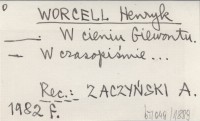 WORCELL Henryk
— W cieniu Giewontu.
— W czasopiśmie...
Rec.: ZACZYŃSKI A.
1982 r.